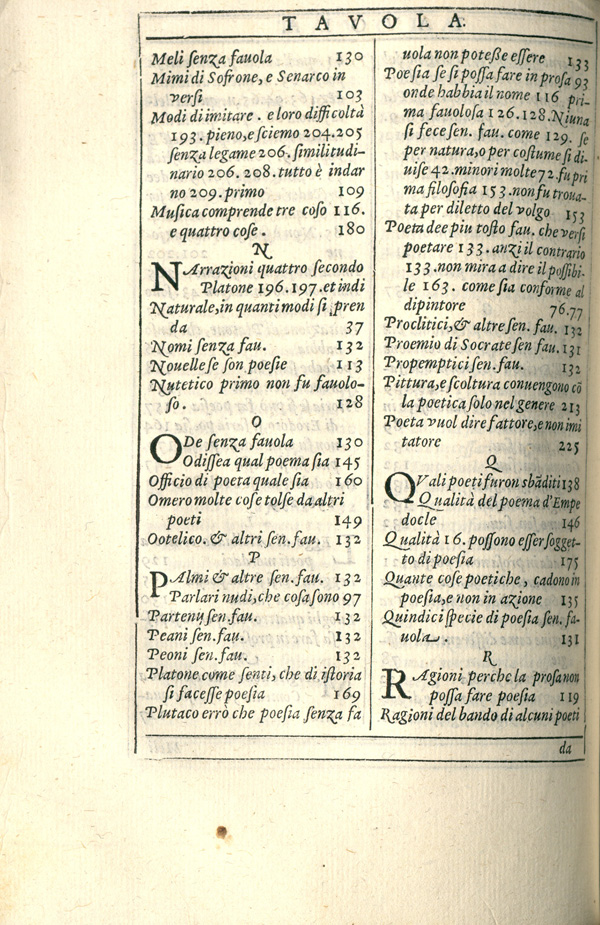 TAVOLA.
Meli ſenza fauola 130
Mimi di Sofrone, e Senarco in
verſi 103
Modi di imitare . e loro difficoltà
193. pieno, e ſciemo 204.205
ſenza legame 206. ſimilitudi-
nario 206. 208. tutto è indar
no 209. primo 109
Muſica comprende tre coſo 116.
e quattro coſe . 180
N
NArrazioni quattro ſecondo
Platone 196.197. et indi
Naturale, in quanti modi ſi pren
da 37
Nomi ſenza fau. 132
Nouelle ſe ſon poeſie 113
Nutetico primo non fu fauolo-
ſo. 128
O
ODe ſenza fauola 130
Odiſſea qual poema ſia 145
Officio di poeta quale ſia 160
Omero molte coſe tolſe da altri
poeti 149
Ootelico. & altri ſen. fau. 132
P
PAlmi & altre ſen. fau. 132
Parlari nudi, che coſa sono 97
Partenij ſen. fau. 132
Peani ſen. fau. 132
Peoni ſen. fau. 132
Platone come ſenti, che di iſtoria
ſi faceſſe poeſia 169
Plutaco errò che poeſia ſenza fa
uola non poteſſe eſſere 133
Poeſia ſe ſi poſſa fare in proſa 93
onde habbia il nome 116 pri-
ma fauoloſa 126.128. Niuna
ſi fece ſen. fau. come 129. ſe
per natura, o per coſtume ſi di-
uiſe 42. minori molte 72. fu pri
ma filoſofia 153. non fu troua-
ta per diletto del volgo 153
Poeta dee piu toſto fau. che verſi
poetare 133. anzi il contrario
133. non mira a dire il poſſibi-
le 163. come ſia conforme al
dipintore 76.77
Proclitici, & altre ſen. fau. 132
Proemio di Socrate ſen fau. 131
Propemptici ſen. fau. 132
Pittura, e ſcoltura conuengono cō
la poetica ſolo nel genere 213
Poeta vuol dire fattore, e non imi
tatore 225
Q
QVali poeti furon sbāditi 138
Qualità del poema d'Empe
docle 146
Qualità 16. poſſono eſſer ſogget-
to di poeſia 175
Quante coſe poetiche, cadono in
poeſia, e non in azione 135
Quindici ſpecie di poeſia sen. fa-
uola. 131
R
RAgioni perche la proſa non
poſſa fare poeſia 119
Ragioni del bando di alcuni poeti
da